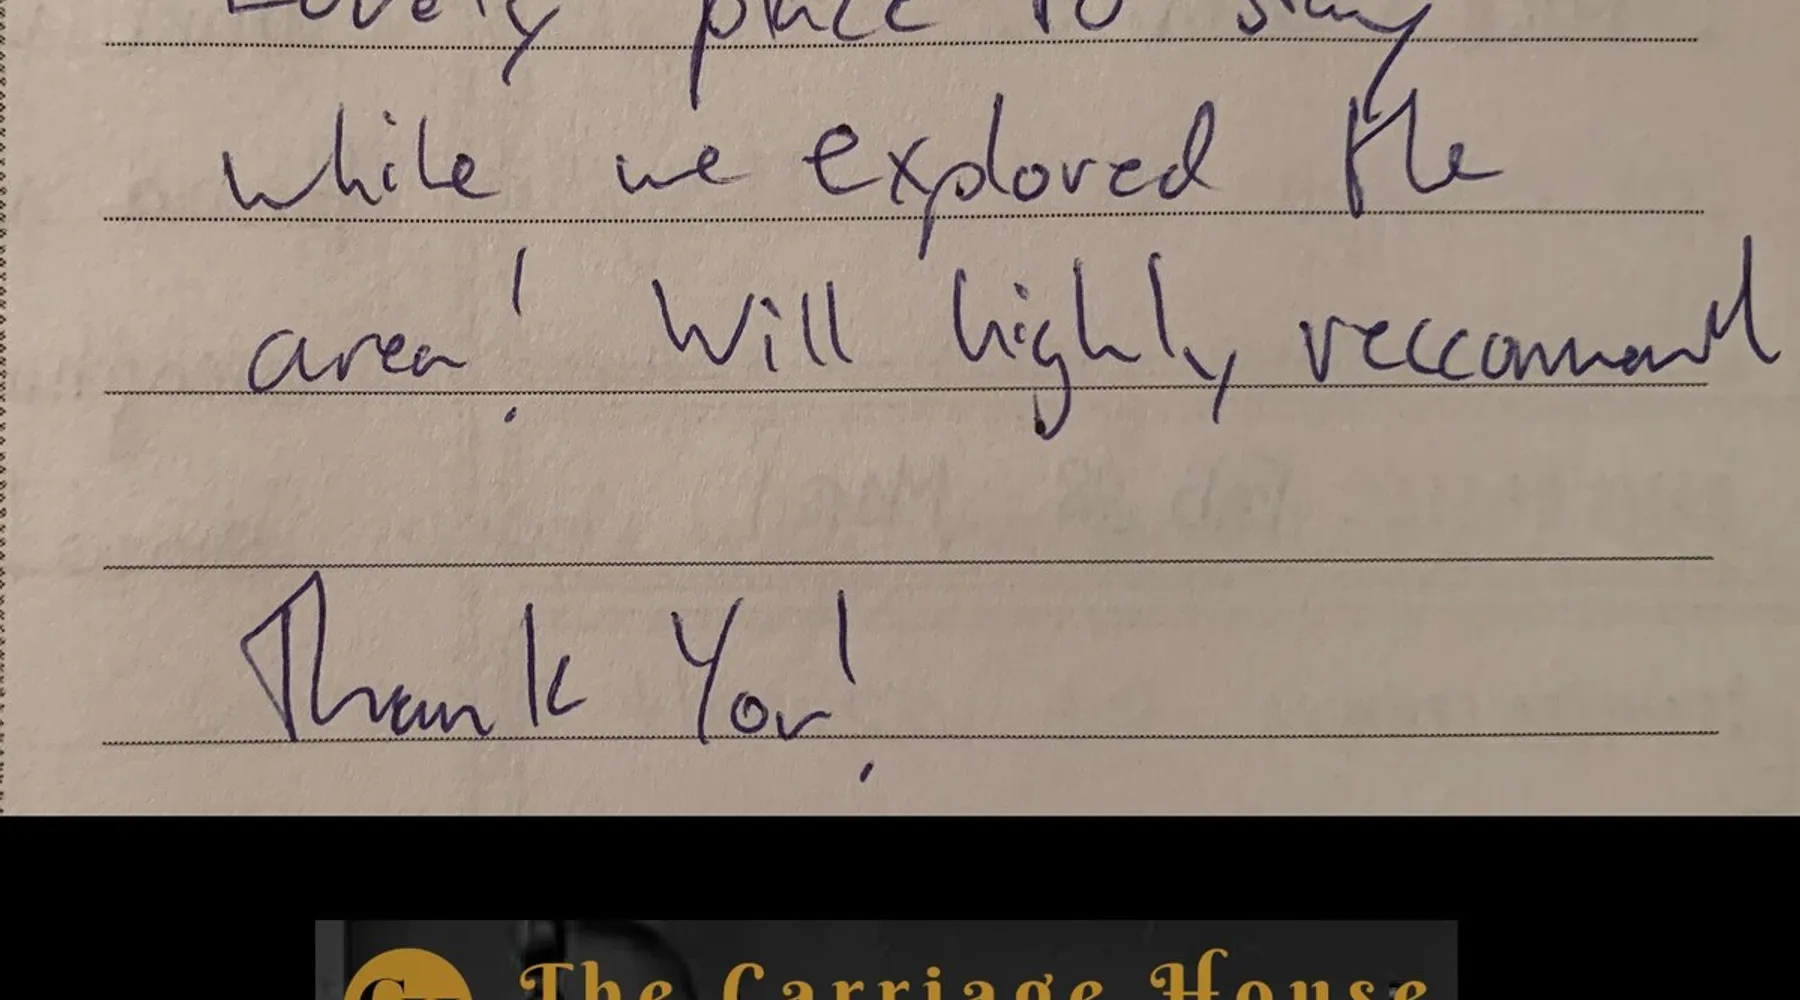 Lovely place to stay
while we explored the
area! Will highly reccomend
Thank You!
The Carriage House